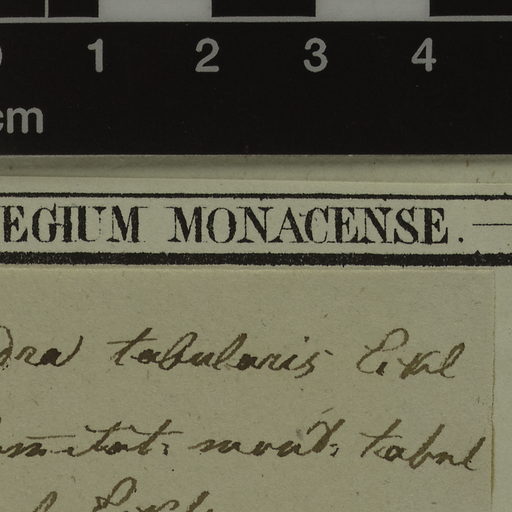 0 1 2 3 4
cm
EGIUM MONACENSE.
dra tabularis Eckl
mitat: mont. tabul